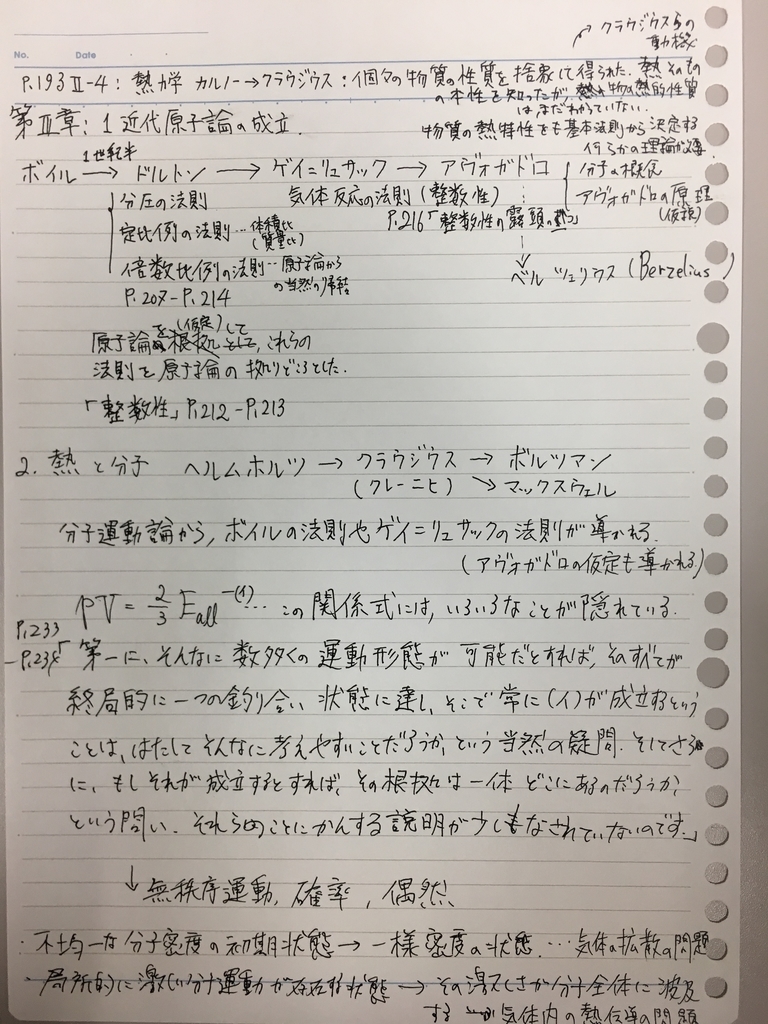 クラウジウスらの
動機
No. Date
P.193 Ⅱ-4: 熱力学 カルノー→クラウジウス: 個々の物質の性質を捨象して得られた. 熱そのもの
の本性を知ったが, 物の熱的性質
は, まだわかっていない.
第Ⅲ章: 1 近代原子論の成立.
物質の熱特性をも基本法則から決定する
何らかの理論が必要
1世紀半
ボイル → ドルトン → ゲイ=リュサック → アヴォガドロ
分子の概念
分圧の法則
気体反応の法則 (整数性)
アヴォガドロの原理
(仮説)
定比例の法則…体積比
(質量比)
P.216「整数性の露頭の一つ」
倍数比例の法則…原子論から
の当然の帰結
ベルツェリウス (Berzelius)
P.207-P.214
原子論を(仮定)して, これらの
法則を原子論の拠りどころとした.
「整数性」P.212-P.213
2. 熱と分子 ヘルムホルツ → クラウジウス → ボルツマン
(クレーニヒ) ↘ マックスウェル
分子運動論から, ボイルの法則やゲイ=リュサックの法則が導かれる.
(アヴォガドロの仮定も導かれる)
pV = 2/3 E_all -(イ)… この関係式には, いろいろなことが隠れている.
P.233
-P.234「第一に, そんなに数多くの運動形態が可能だとすれば, そのすべてが
終局的に一つの釣り合い状態に達し, そこで常に(イ)が成立するという
ことは, はたしてそんなに考えやすいことだろうか, という当然の疑問. そしてさら
に, もしそれが成立するとすれば, その根拠は一体どこにあるのだろうか,
という問い. それらのことにかんする説明が少しもなされていないのです.」
↓ 無秩序運動, 確率, 偶然
・不均一な分子密度の初期状態→一様密度の状態.…気体の拡散の問題
・局所的に激しい分子運動が存在する状態→その激しさが分子全体に波及
する… 気体内の熱伝導の問題